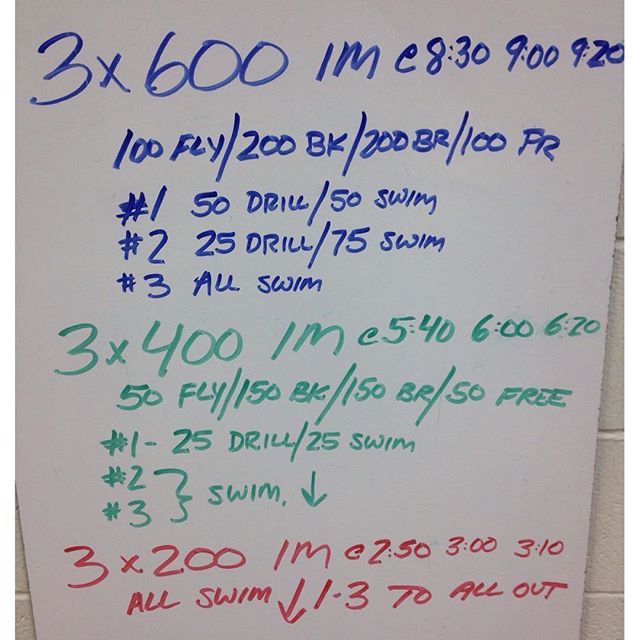 3 x 600 IM @ 8:30 9:00 9:20
100 FLY/200 BK/200 BR/100 FR
#1 50 DRILL/50 SWIM
#2 25 DRILL/75 SWIM
#3 ALL SWIM
3 x 400 IM @ 5:40 6:00 6:20
50 FLY/150 BK/150 BR/50 FREE
#1- 25 DRILL/25 SWIM
#2 } SWIM. ↓
#3
3 x 200 IM @ 2:50 3:00 3:10
ALL SWIM ↓ 1-3 TO ALL OUT